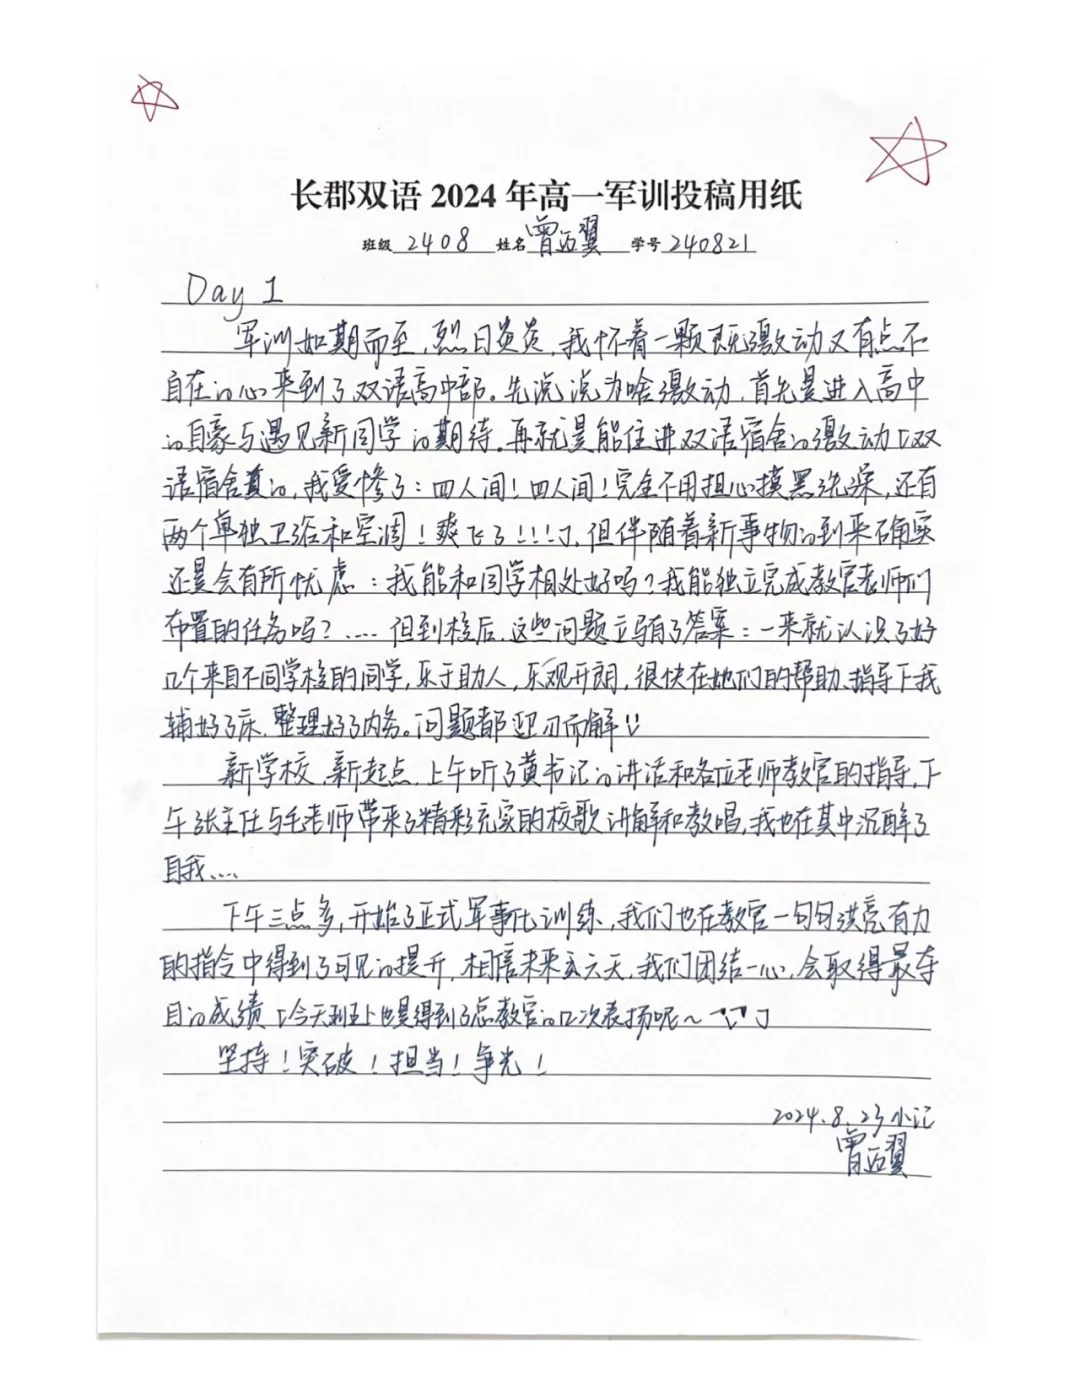 长郡双语 2024 年高一军训投稿用纸
班级 2408 姓名 曾翼 学号 240821
Day 1
军训如期而至，烈日炎炎，我怀着一颗既激动又有点不
自在的心来到了双语高中部。先说说为啥激动，首先是进入高中
的自豪与遇见新同学的期待，再就是能住进双语宿舍的激动「双
语宿舍真的，我爱惨了：四人间！四人间！完全不用担心摸黑洗澡，还有
两个单独卫浴和空调！爽飞了!!!」，但伴随着新事物的到来确实
还是会有所忧虑：我能和同学相处好吗？我能独立完成教官老师们
布置的任务吗？.... 但到校后，这些问题立马有了答案：一来就认识了好
几个来自不同学校的同学，乐于助人，乐观开朗，很快在她们的帮助、指导下我
铺好了床，整理好了内务。问题都迎刃而解!!
新学校，新起点，上午听了黄书记的讲话和各位老师教官的指导，下
午张主任与毛老师带来了精彩充实的校歌讲解和教唱，我也在其中沉醉了
自我....
下午三点多，开始了正式军事化训练，我们也在教官一句句洪亮有力
的指令中得到了可见的提升，相信未来五六天，我们团结一心，会取得最夺
目的成绩「今天到晚上也是得到了总教官的几次表扬呢～」
坚持！突破！担当！争光！
2024.8.23小记
曾翼